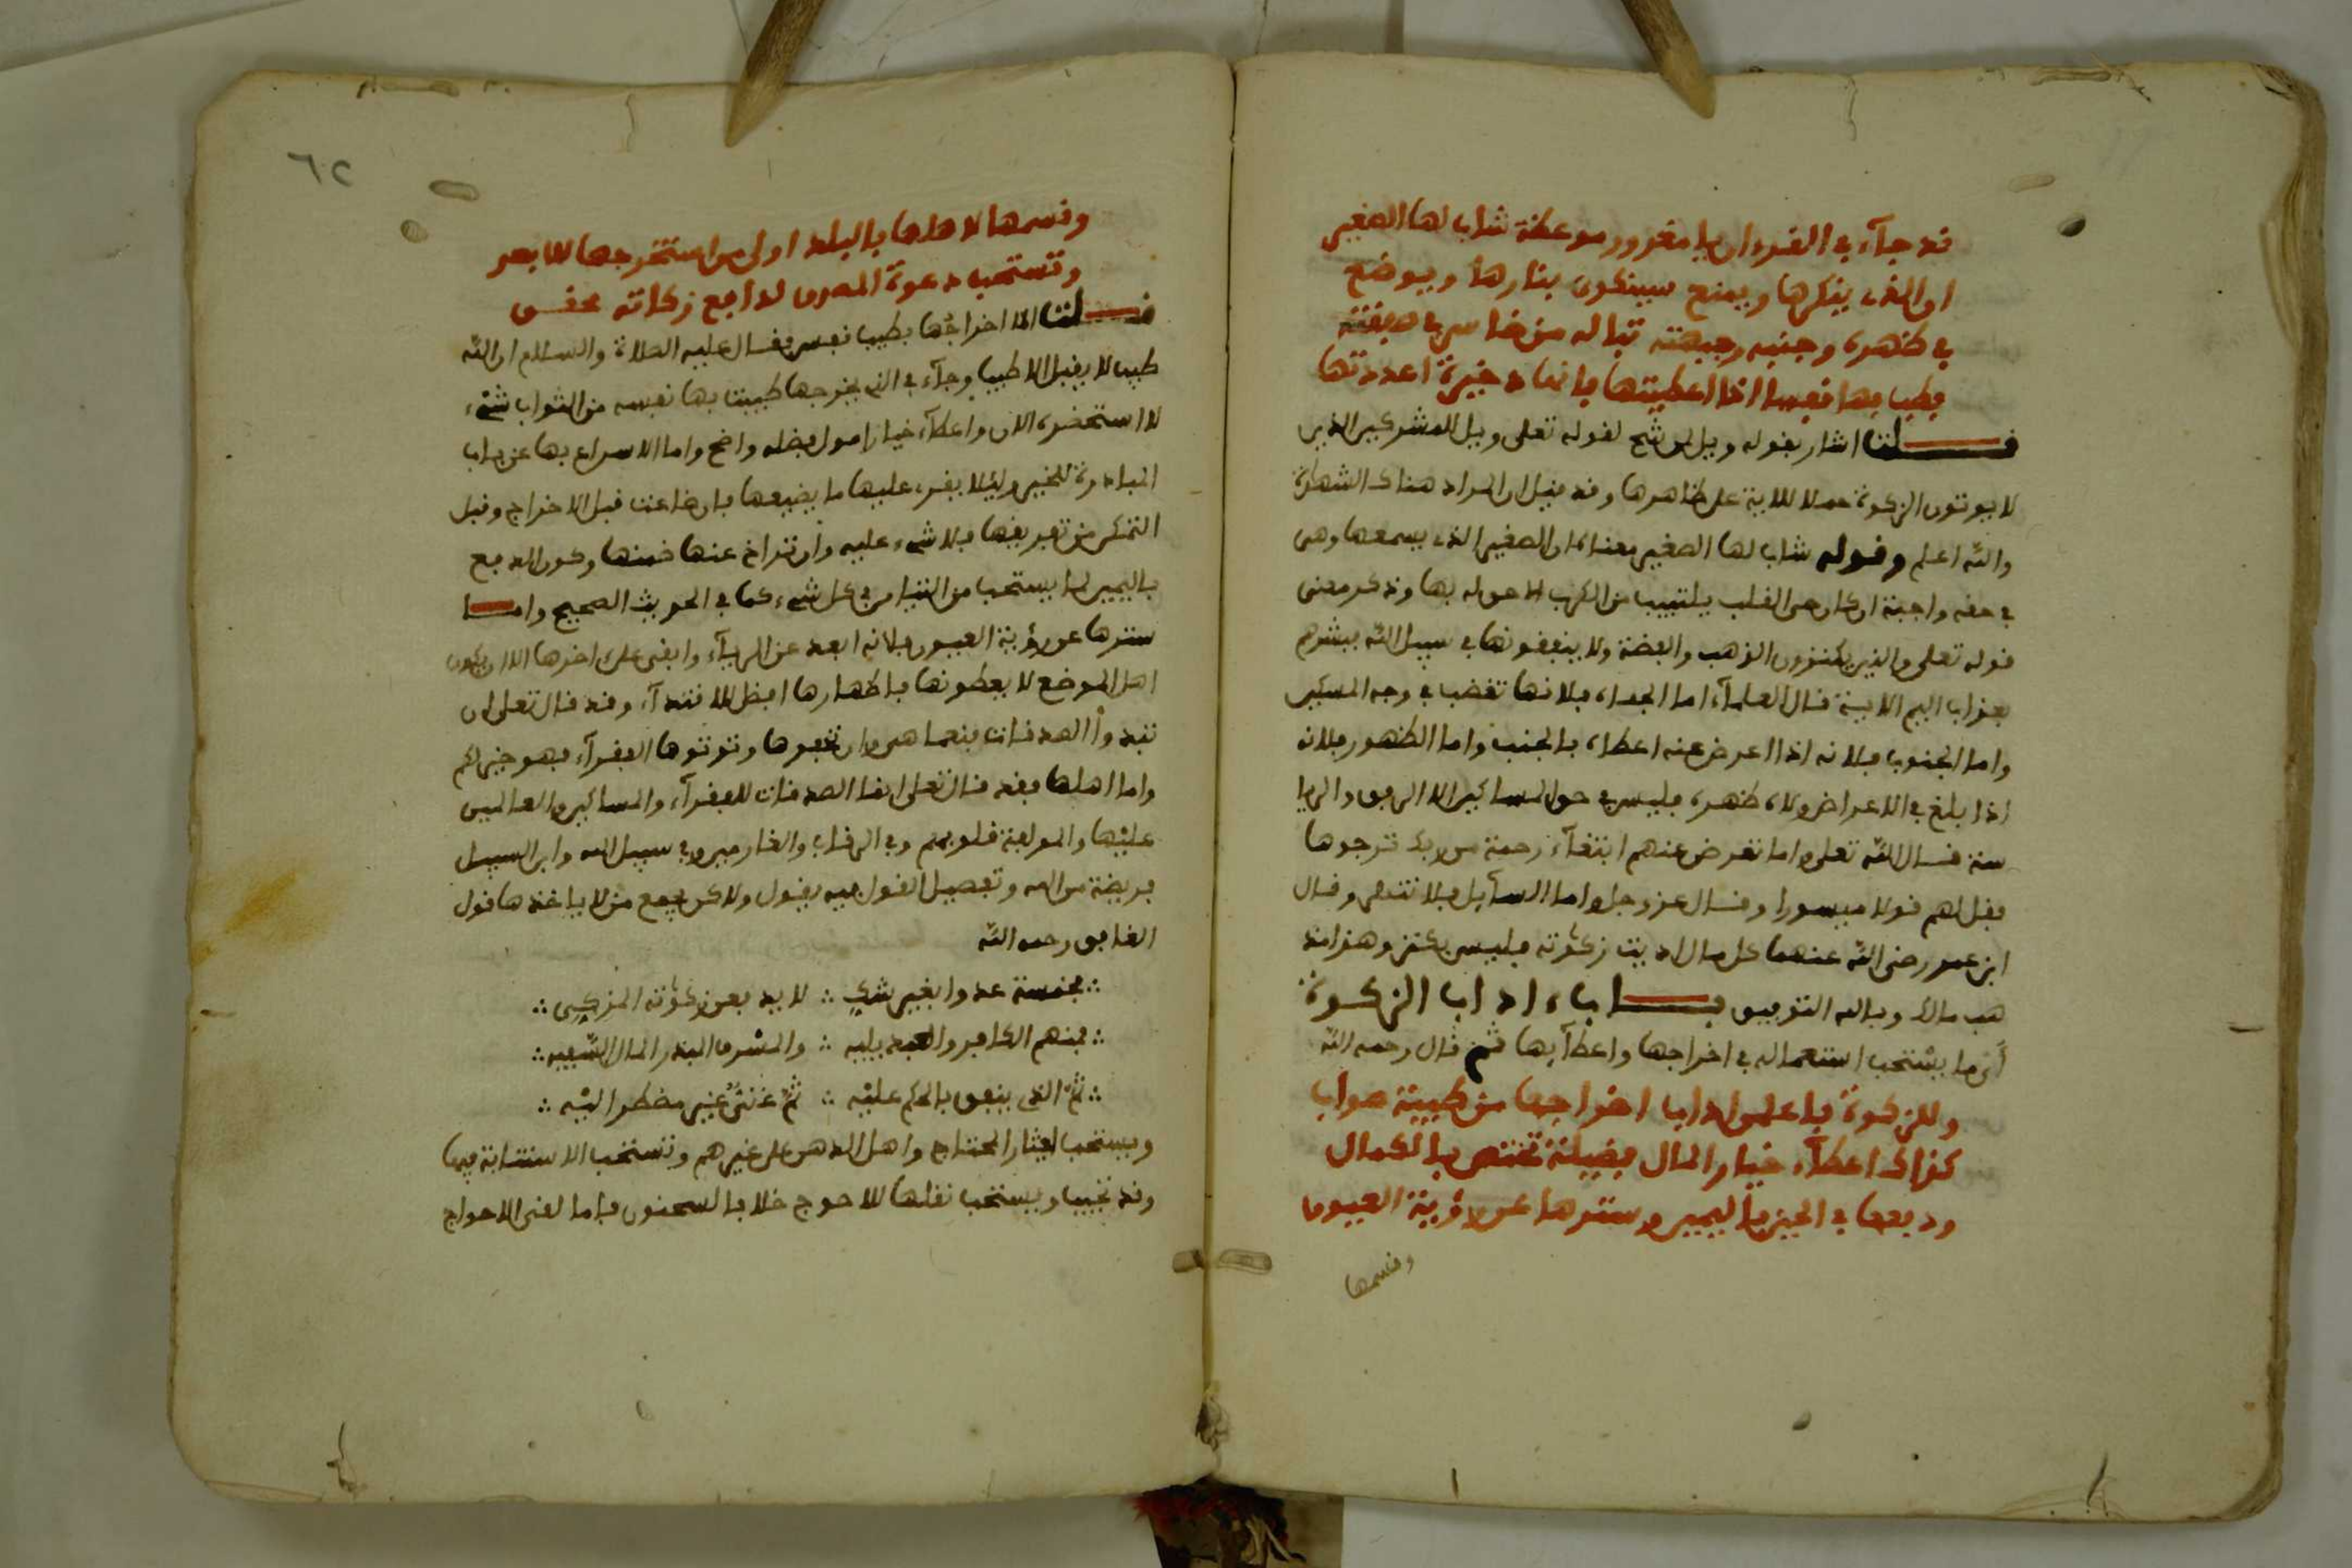 قد جآء في القرءان يا مغرور موعظة شاب لها الصغير
او الذي ينكرها ويمنع سيتكوى بنارها ويوضع
في ظهره وجنبه وجبهته تبا له من خاسر في صفقته
فطب بها نفسا اذا اعطيتها فانها ذخيرة اعددتها
قلت اشار بقوله ويل لقوله تعلى وويل للمشركين الذين
لا يوتون الزكوة حملا للاية على ظاهرها وقد قيل ان المراد هناك الشهادة
والله اعلم وقوله شاب لها الصغير معناه ان الصغير الذي يسمعها وهي
في حقه واجبة ان كان حي القلب يشيب من الكرب لاجلها وذكر معنى
قوله تعلى والذين يكنزون الذهب والفضة ولا ينفقونها في سبيل الله فبشرهم
بعذاب اليم الاية قال العلمآء اما الجباه فلانها تقضب في وجه المسكين
واما الجنوب فلانه اذا اعرض عنه اعطاه بالجنب واما الظهور فلانه
اذا بلغ في الاعراض ولاه ظهره فليس في حق المساكين الا الرفق والا
سنة قال الله تعلى واما تعرض عنهم ابتغآء رحمة من ربك ترجوها
فقل لهم قولا ميسورا وقال عز وجل واما السآيل فلا تنهر وقال
ابن عمر رضي الله عنهما كل مال اديت زكوته فليس بكنز وهذا مذ
هب مالك وبالله التوفيق بــاب ءاداب الزكوة
أي ما يستحب استعماله في اخراجها واعطآيها ثم قال رحمه الله
وللزكوة فاعلمن اداب اخراجها من طيبة صواب
كذاك اعطآء خيار المال فضيلة تختص بالكمال
ودفعها في الحين باليمين وسترها عن رؤية العيون
وقسمها
٦٢
وقسمها لاهلها بالبلد اولى من استخرجها للابعد
وتستحب دعوة المصرف لدافع زكاته
قلت اما اخراجها بطيب نفس فقال عليه الصلاة والسلام ان الله
طيب لا يقبل الا طيبا وجآء في الذي يخرجها طيبت بها نفسه من الثواب شيء
لا استحضره الان واعطآء خيار امول فضله واضح واما الاسراع بها عن باب
المبادرة للخير وليلا يطرء عليها ما يضيعها فان ضاعت قبل الاخراج وقبل
التمكن من تفريقها فلا شيء عليه وان تراخ عنها ضمنها وكون الدفع
باليمين لما يستحب من التيامن في كل شيء كما في الحديث الصحيح وامــا
سترها عن رؤية العيون فلانه ابعد عن الريآء وابقى على اخرها الا ان يكون
اهل الموضع لا يعطونها فاظهارها افضل للاقتدآء وقد قال تعلى ان
تبدوا الصدقات فنعما هي وان تخفوها وتوتوها الفقرآء فهو خير لكم
واما اهلها فقد قال تعلى انما الصدقات للفقرآء والمساكين والعالمين
عليها والمولفة قلوبهم وفي الرقاب والغارمين وفي سبيل الله وابن السبيل
فريضة من الله وتفصيل القول فيه يطول ولاكن يجمع من لا ياخذها قول
القايل رحمه الله
∴ خمسة عدوا بغير شك ∴ لا يدفعن زكوته المزكي ∴
∴ فمنهم الكافر والعبد يليه ∴ والمشرف المبذر المال السفيه ∴
∴ ثم الذي ينفق بالحكم عليه ∴ ثم غني غير مضطر اليه ∴
ويستحب ايثار المحتاج واهل الدين على غيرهم وتستحب الاستنابة فيها
وقد تجب ويستحب نقلها للاحوج خلافا لسحنون فاما لغير الاحواج